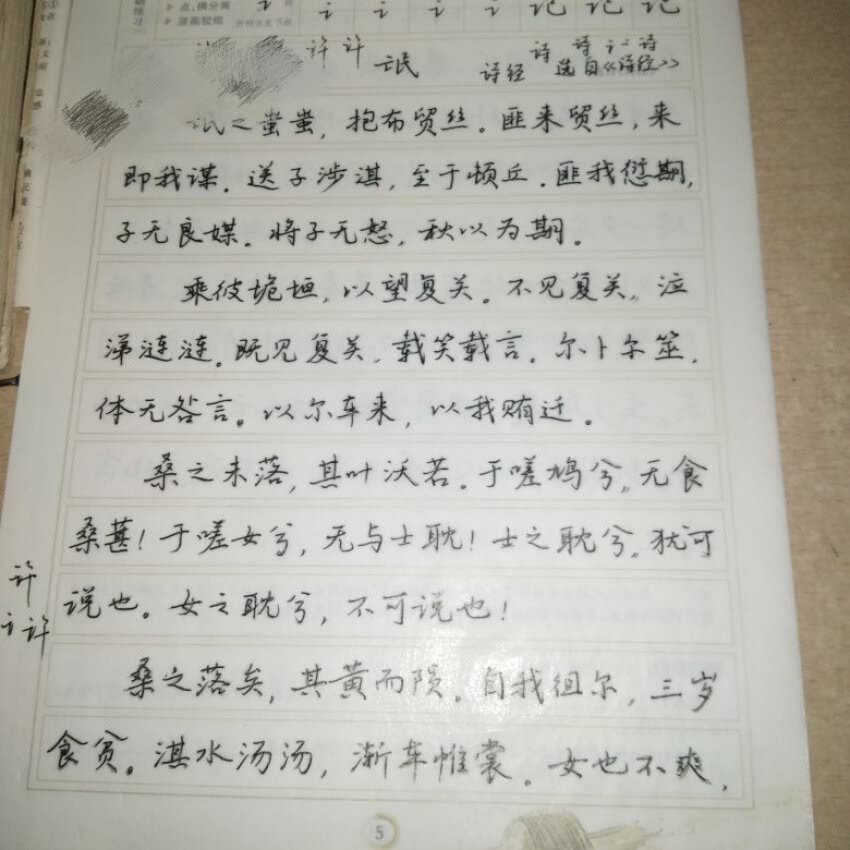 讠 讠 讠 讠 记 记 记
4 点、横分离
许 许 氓 诗经 诗 诗 讠 讠 诗
选自《诗经》
氓之蚩蚩，抱布贸丝。匪来贸丝，来
即我谋。送子涉淇，至于顿丘。匪我愆期，
子无良媒。将子无怒，秋以为期。
乘彼垝垣，以望复关。不见复关，泣
涕涟涟。既见复关，载笑载言。尔卜尔筮，
体无咎言。以尔车来，以我贿迁。
桑之未落，其叶沃若。于嗟鸠兮，无食
桑葚！于嗟女兮，无与士耽！士之耽兮，犹可
说也。女之耽兮，不可说也！
许
讠许
桑之落矣，其黄而陨。自我徂尔，三岁
食贫。淇水汤汤，渐车帷裳。女也不爽，
5